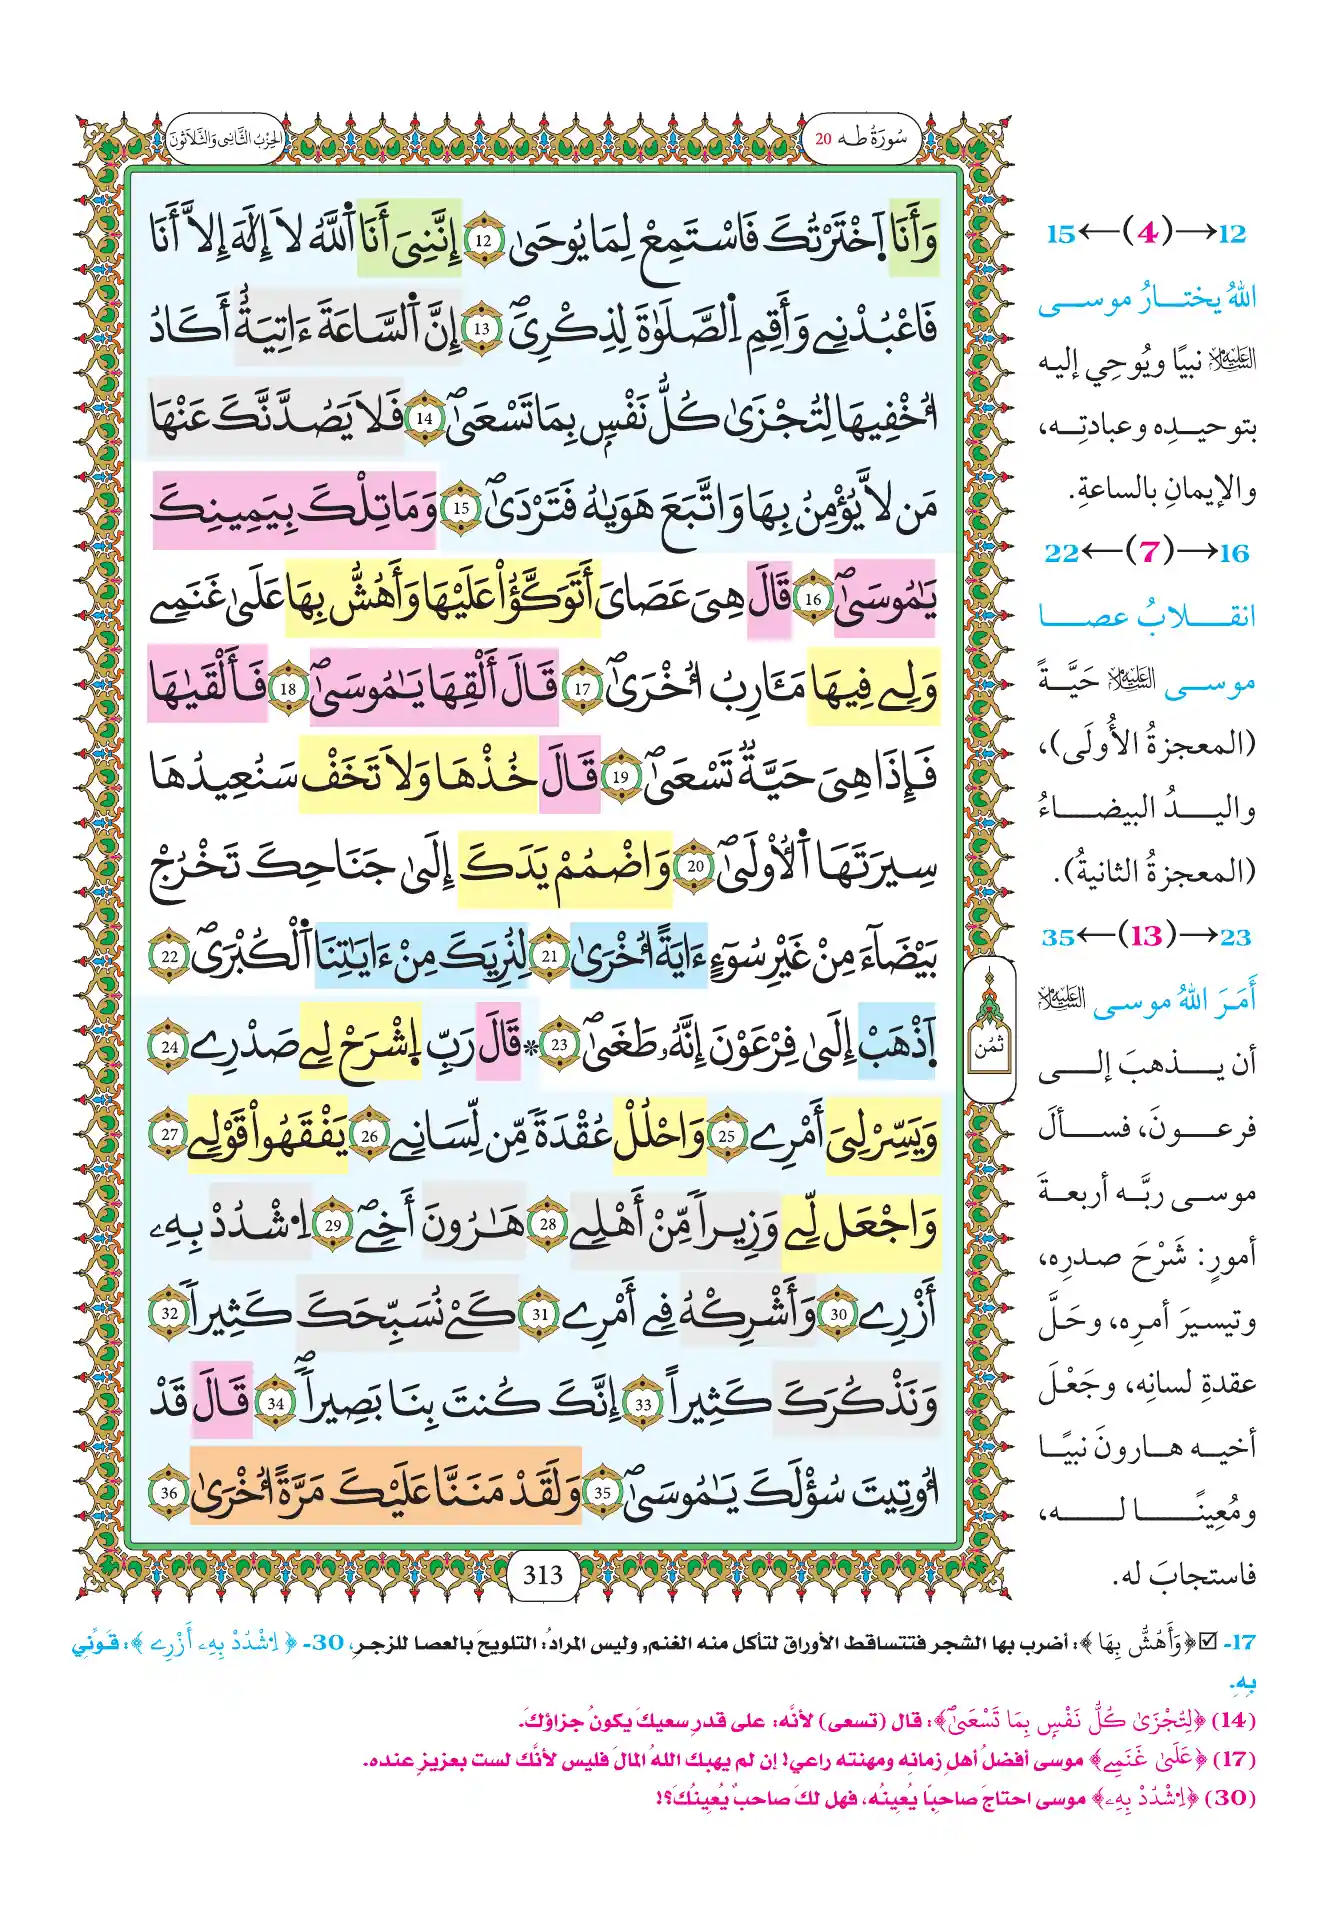 سُورَةُ طه 20
الحِزْبُ الثَّانِي وَالثَّلَاثُونَ
وَأَنَا اَخْتَرْتُكَ فَاسْتَمِعْ لِمَا يُوحَىٰ 12 إِنَّنِيَ أَنَا اَللَّهُ لَا إِلَٰهَ إِلَّا أَنَا
فَاعْبُدْنِے وَأَقِمِ اِلصَّلَوٰةَ لِذِكْرِيَ 13 إِنَّ اَلسَّاعَةَ ءَاتِيَةٌ أَكَادُ
أُخْفِيهَا لِتُجْزَىٰ كُلُّ نَفْسٍ بِمَا تَسْعَىٰ 14 فَلَا يَصُدَّنَّكَ عَنْهَا
مَن لَّا يُؤْمِنُ بِهَا وَاتَّبَعَ هَوَيٰهُ فَتَرْدَىٰ 15 وَمَا تِلْكَ بِيَمِينِكَ
يَٰمُوسَىٰ 16 قَالَ هِيَ عَصَايَ أَتَوَكَّؤُاْ عَلَيْهَا وَأَهُشُّ بِهَا عَلَىٰ غَنَمِے
وَلِے فِيهَا مَـَٔارِبُ أُخْرَىٰ 17 قَالَ أَلْقِهَا يَٰمُوسَىٰ 18 فَأَلْقَيٰهَا
فَإِذَا هِيَ حَيَّةٌ تَسْعَىٰ 19 قَالَ خُذْهَا وَلَا تَخَفْ سَنُعِيدُهَا
سِيرَتَهَا اَلْأُولَىٰ 20 وَاضْمُمْ يَدَكَ إِلَىٰ جَنَاحِكَ تَخْرُجْ
بَيْضَآءَ مِنْ غَيْرِ سُوٓءٍ ءَايَةً أُخْرَىٰ 21 لِنُرِيَكَ مِنْ ءَايَٰتِنَا اَلْكُبْرَى 22
اَذْهَبْ إِلَىٰ فِرْعَوْنَ إِنَّهُۥ طَغَىٰ 23 * قَالَ رَبِّ اِشْرَحْ لِے صَدْرِے 24
وَيَسِّرْ لِيَ أَمْرِے 25 وَاحْلُلْ عُقْدَةً مِّن لِّسَانِے 26 يَفْقَهُواْ قَوْلِے 27
وَاجْعَل لِّے وَزِيراً مِّنْ أَهْلِے 28 هَٰرُونَ أَخِے 29 اِشْدُدْ بِهِۦ
أَزْرِے 30 وَأَشْرِكْهُ فِے أَمْرِے 31 كَےْ نُسَبِّحَكَ كَثِيراً 32
وَنَذْكُرَكَ كَثِيراً 33 إِنَّكَ كُنتَ بِنَا بَصِيراً 34 قَالَ قَدْ
أُوتِيتَ سُؤْلَكَ يَٰمُوسَىٰ 35 وَلَقَدْ مَنَنَّا عَلَيْكَ مَرَّةً أُخْرَىٰ 36
ثمُن
313
12→(4)←15
اللهُ يختارُ موسى
عليه السلام نبيًا ويُوحِي إليه
بتوحيدِه وعبادتِه،
والإيمانِ بالساعةِ.
16→(7)←22
انقلابُ عصا
موسى عليه السلام حَيَّةً
(المعجزةُ الأُولَى)،
واليدُ البيضاءُ
(المعجزةُ الثانيةُ).
23→(13)←35
أَمَرَ اللهُ موسى عليه السلام
أن يذهبَ إلى
فرعونَ، فسألَ
موسى ربَّه أربعةَ
أمورٍ: شَرْحَ صدرِه،
وتيسيرَ أمرِه، وحَلَّ
عقدةِ لسانِه، وجَعْلَ
أخيه هارونَ نبيًا
ومُعِينًا له،
فاستجابَ له.
17- ☑ ﴿وَأَهُشُّ بِهَا﴾: أضرب بها الشجر فتتساقط الأوراق لتأكل منه الغنم, وليس المرادُ: التلويحَ بالعصا للزجرِ, 30- ﴿اِشْدُدْ بِهِۦ أَزْرِے﴾: قَوِّنِي
بِهِ.
(14) ﴿لِتُجْزَىٰ كُلُّ نَفْسٍ بِمَا تَسْعَىٰ﴾: قال (تسعى) لأنَّه: على قدرِ سعيكَ يكونُ جزاؤكَ.
(17) ﴿عَلَىٰ غَنَمِے﴾ موسى أفضلُ أهلِ زمانِه ومهنته راعي! إن لم يهبك اللهُ المالَ فليس لأنَّك لست بعزيزٍ عنده.
(30) ﴿اِشْدُدْ بِهِۦ﴾ موسى احتاجَ صاحبًا يُعِينُه، فهل لكَ صاحبٌ يُعِينُكَ؟!